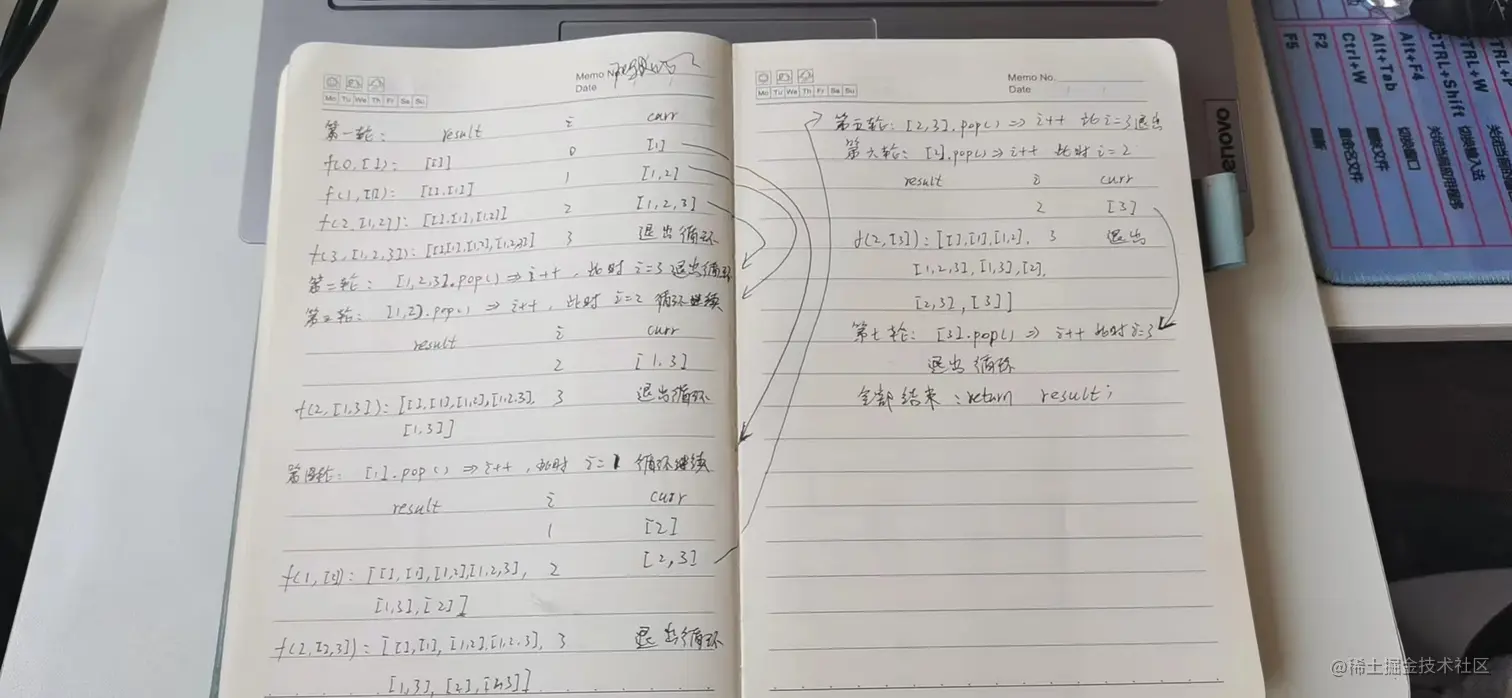 Memo No.
Date
Mo Tu We Th Fr Sa Su
第一轮: result i curr
f(0,[]): [[]] 0 [1]
f(1,[1]): [[],[1]] 1 [1,2]
f(2,[1,2]): [[],[1],[1,2]] 2 [1,2,3]
f(3,[1,2,3]): [[],[1],[1,2],[1,2,3]] 3 退出循环
第二轮: [1,2,3].pop() => i++, 此时 i=3 退出循环
第三轮: [1,2].pop() => i++, 此时 i=2 循环继续
result i curr
2 [1,3]
f(2,[1,3]): [[],[1],[1,2],[1,2,3], 3 退出循环
[1,3]]
第四轮: [1].pop() => i++, 此时 i=1 循环继续
result i curr
1 [2]
f(1,[2]): [[],[1],[1,2],[1,2,3], 2 [2,3]
[1,3],[2]]
f(2,[2,3]): [[],[1],[1,2],[1,2,3], 3 退出循环
[1,3],[2],[2,3]]
Memo No.
Date
Mo Tu We Th Fr Sa Su
第五轮: [2,3].pop() => i++ 此 i=3退出
第六轮: [2].pop() => i++ 此时 i=2
result i curr
2 [3]
f(2,[3]): [[],[1],[1,2], 3 退出
[1,2,3],[1,3],[2],
[2,3],[3]]
第七轮: [3].pop() => i++ 此时i=3
退出循环
全部结束: return result;
F5 刷新
F2 重命名文件
Ctrl+W
Alt+Tab 切换窗口
Alt+F4
CTRL+Shift 切换输入法
CTRL+W
lenovo
@稀土掘金技术社区